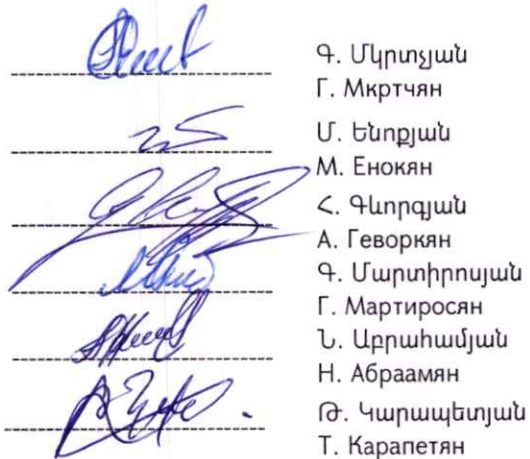 Գ. Մկրտչյան
Г. Мкртчян
Մ. Ենոքյան
М. Енокян
Հ. Գևորգյան
А. Геворкян
Գ. Մարտիրոսյան
Г. Мартиросян
Ն. Աբրահամյան
Н. Абраамян
Թ. Կարապետյան
Т. Карапетян